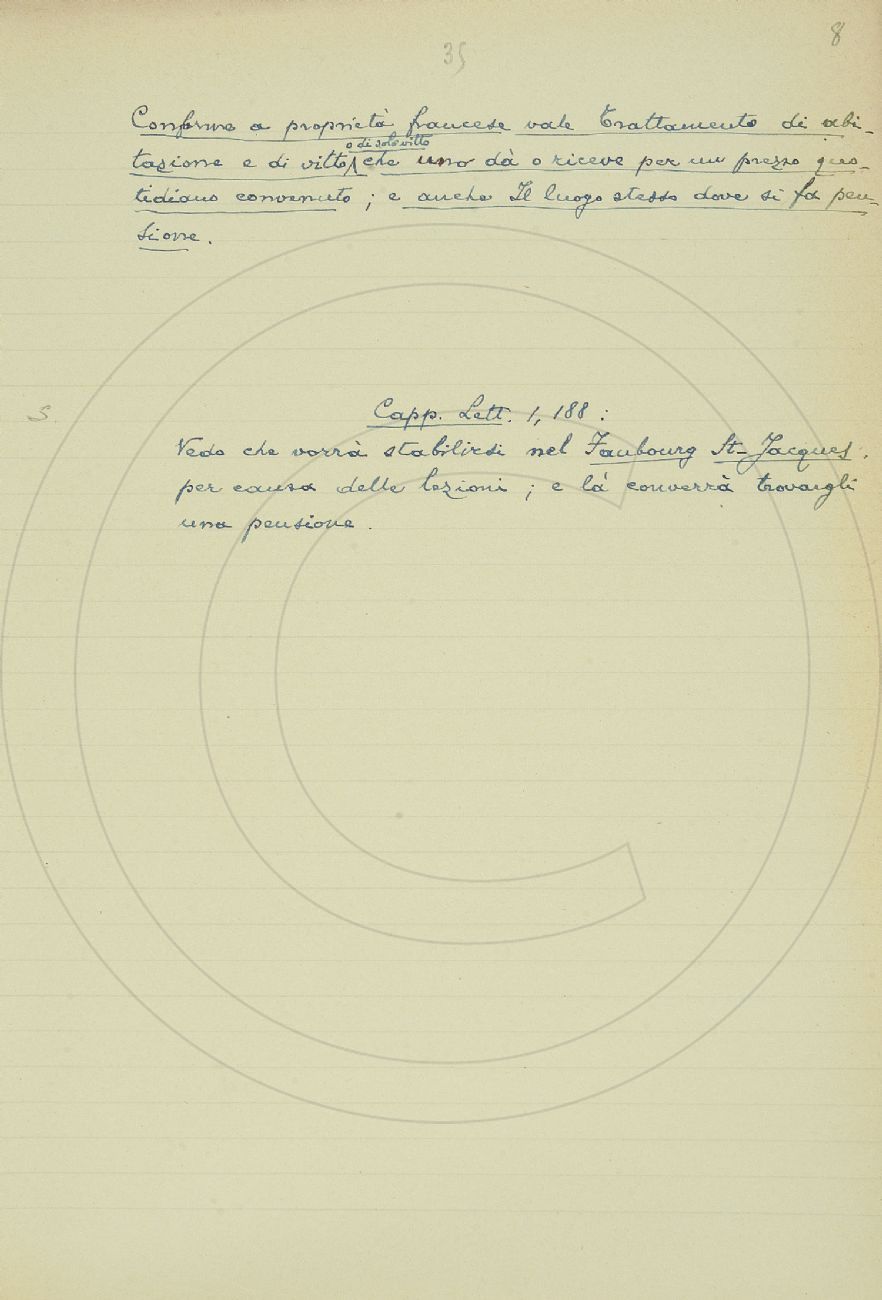 8
35
Conforme a proprietà francese vale Trattamento di abi-
o di solo vitto
tazione e di vitto che uno dà o riceve per un prezzo quo-
tidiano convenuto ; e anche Il luogo stesso dove si fa pen-
sione .
S.
Capp. Lett. 1, 188 :
Vedo che vorrà stabilirsi nel Faubourg St-Jacques .
per causa delle lezioni ; e là converrà trovargli
una pensione .